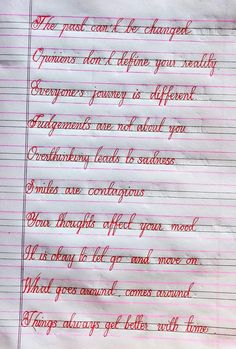 The past can't be changed
Opinions don't define your reality
Everyone's journey is different.
Judgements are not about you
Overthinking leads to sadness.
Smiles are contagious
Your thoughts affect your mood.
It is okay to let go and move on.
What goes around, comes around.
Things always get better with time.